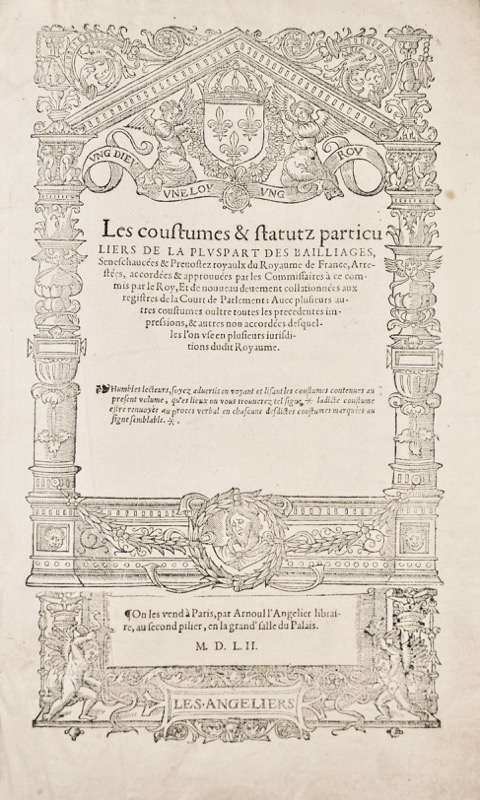 VNG DIEV
VNE LOY
VNG
ROY
Les coustumes & statutz particu
LIERS DE LA PLVSPART DES BAILLIAGES,
Seneschaucées & Preuostez royaulx du Royaume de France, Arre-
stées, accordées & approuuées par les Commissaires à ce com-
mis par le Roy, Et de nouueau deuement collationnées aux
registres de la Court de Parlement: Auec plusieurs au-
tres coustumes oultre toutes les precedentes im-
pressions, & autres non accordées desquel-
les l'on vse en plusieurs iurisdi-
tions dudit Royaume.
Humbles lecteurs, soyez aduertis en voyant et lisant les coustumes contenues au
present volume, qu'es lieux ou vous trouuerez tel signe ⁜ ladicte coustume
estre renuoyée au proces verbal en chascune desdictes coustumes marquées au
signe semblable. ⁜ .
¶On les vend à Paris, par Arnoul l'Angelier librai-
re, au second pilier, en la grand' salle du Palais.
M. D. L. II.
LES·ANGELIERS